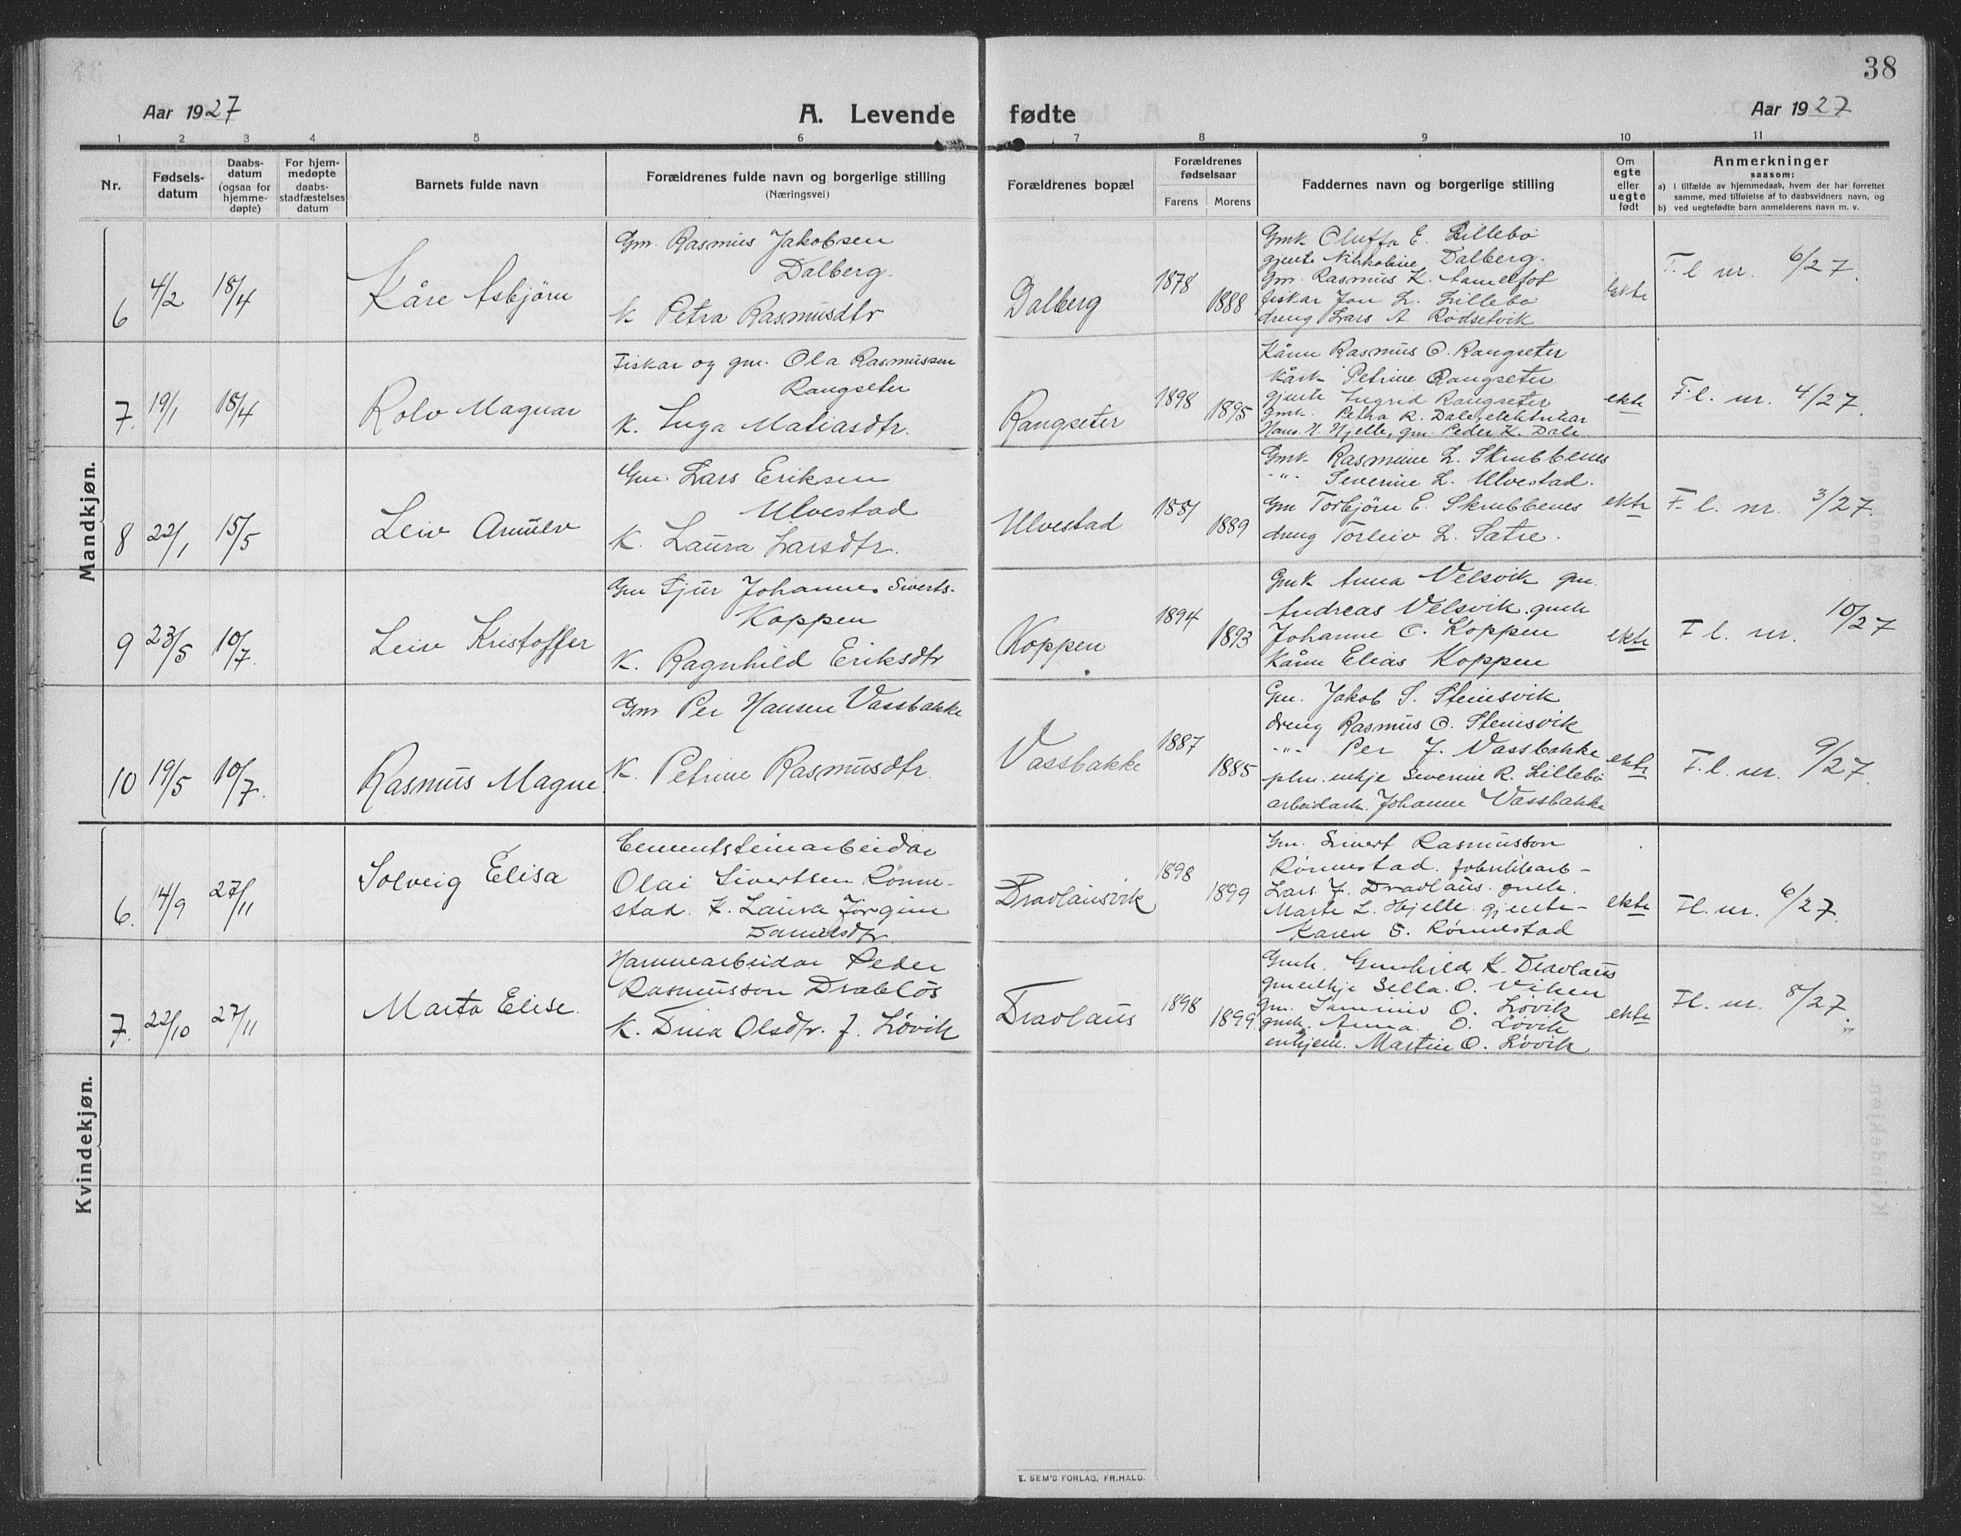 38
Aar 1927
A. Levende fødte
Aar 1927
1 2 3 4 5 6 7 8 9 10 11
Nr.
Fødsels-
datum
Daabs-
datum
(ogsaa for
hjemme-
døpte)
For hjem-
medøpte
daabs-
stadfæstelses
datum
Barnets fulde navn
Forældrenes fulde navn og borgerlige stilling
(Næringsvei)
Forældrenes bopæl
Forældrenes
fødselsaar
Farens Morens
Faddernes navn og borgerlige stilling
Om
egte
eller
uegte
født
Anmerkninger
saasom:
a) i tilfælde av hjemmedaab, hvem der har forrettet
samme, med tilføielse af to daabsvidners navn, og
b) ved uegtefødte barn anmelderens navn m. v.
Mandkjøn.
6 4/2 18/4 Kåre Asbjörn
Gm. Rasmus Jakobsen
Dalberg.
K. Petra Rasmusdtr
Dalberg 1878 1888
Gmk Oluffa E. Lillebö
gjente Dalberg.
Gm. Rasmus K. Aamelfot
fiskar Jon L. Lillebö
dreng Lars A Rödsetvik
ekte
F. l nr. 6/27.
7. 19/1 18/4 Rolv Magnar
Fiskar og gm. Ola Rasmussen
Rangseter
K. Inga Matiasdtr.
Rangseter 1898 1895
Kårm Rasmus O. Rangseter
kårk Petrine Rangseter
gjente Ingrid Rangseter
Gmk. Petra R. Dale, elektrikar
Hans H. Hjelle, gm. Peder K. Dale
ekte
F. l. nr. 4/27.
8 22/1 15/5 Leiv Annulv
Gm. Lars Eriksen
Ulvestad
K. Laura Larsdtr.
Ulvestad 1881 1889
Gmk Rasmine L. Skrubbenes
-"- Severine L. Ulvestad.
Gm Torbjörn E. Skrubbenes
dreng Torleiv L. Sætre.
ekte
F. l. nr. 3/27.
9 23/5 10/7. Leiv Kristoffer
Gm Sjur Johannes Siverts-
Koppen
K. Ragnhild Eriksdtr
Koppen 1894 1893
Gmk Anna Velsvik gm
Andreas Velsvik. gmk
Johanne O. Koppen
Kårm Elias Koppen
ekte
F l. nr. 10/27
10 19/5 10/7. Rasmus Magne
Gm Per Hansen Vassbakke
K. Petrine Rasmusdtr.
Vassbakke 1887 1885
Gm. Jakob S. Steinsvik
dreng Rasmus O. Steinsvik
-"- Per J. Vassbakke
enkje Severine R. Lillebö
arbeidark. Johanne Vassbakke
ekte
F. l. nr. 9/27.
Kvindekjøn.
6. 14/9 27/11 Solveig Elisa
Cementsteinarbeidar
Olai Sivertsen Rönne-
stad. K. Laura Jörgine
Danielsdtr.
Dravlausvik 1898 1899
Gm. Sivert Rasmusson
Rönnestad. fabrikkarb-
Lars J. Dravlaus. gmk.
Marte L. Hjelle. gjente-
Karen S. Rönnestad
ekte
Fl. nr. 6/27.
7. 22/10 27/11 Marta Elise.
Hamnearbeidar Peder
Rasmusson Drabløs
K. Dina Olsdtr. f. Løvik
Dravlaus 1898 1899
Gmk. Gunhild K. Dravlaus
gmenkje Sella. O. Viken
gm. O. Løvik
gmk. Anna. O. Løvik
Martin O. Løvik
ekte
Fl. nr. 8/27.
E. SEM'S FORLAG, FR.HALD.